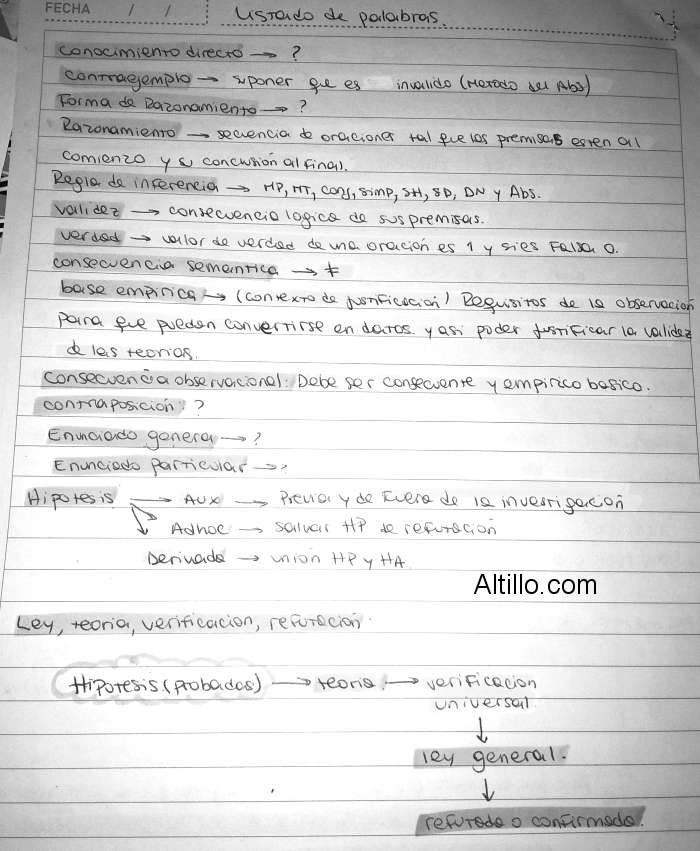 FECHA / /
Listado de palabras.
conocimiento directo → ?
contraejemplo → suponer que es invalido (Metodo del Abs)
Forma de Razonamiento → ?
Razonamiento → secuencia de oraciones tal que las premisas esten al
comienzo y su conclusión al final.
Regla de inferencia → MP, MT, Conj, Simp, SH, SD, DN y Abs.
validez → consecuencia logica de sus premisas.
verdad → valor de verdad de una oración es 1 y si es Falsa 0.
consecuencia semantica → ⊧
base empirica → (contexto de justificación) Requisitos de la observacion
para que puedan convertirse en datos y asi poder justificar la validez
de las teorias.
consecuencia observacional: Debe ser consecuente y empirico basico.
contraposición: ?
Enunciado general → ?
Enunciado particular → ?
Hipotesis → AUX → Previa y de Fuera de la investigación
→ Adhoc → salvar HP de refutación
Derivada → unión HP y HA
Altillo.com
Ley, teoria, verificacion, refutación.
Hipotesis (probadas) → teoria → verificacion
universal
↓
ley general.
↓
refutada o confirmada.